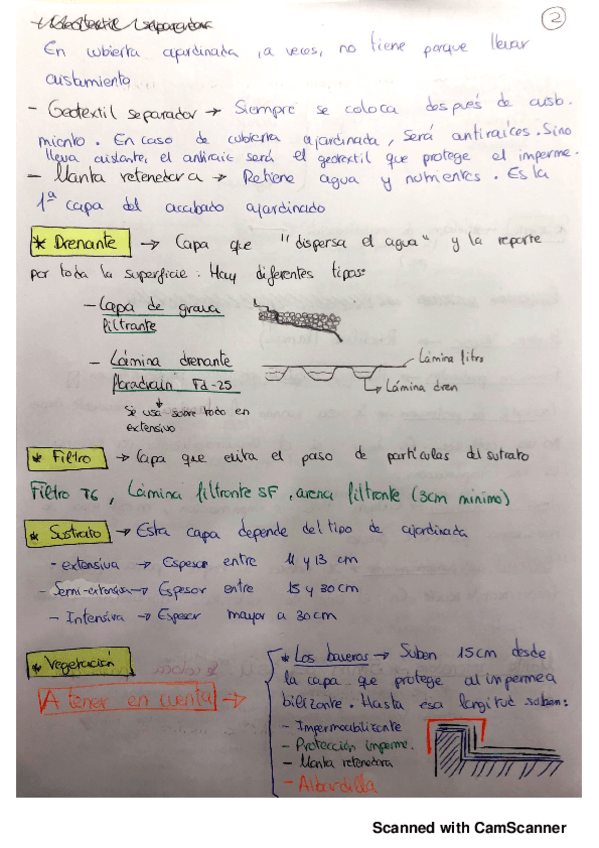 ②
Geotextil separador
En cubierta ajardinada, a veces, no tiene porque llevar
aislamiento
- Geotextil separador → Siempre se coloca después de aisla-
miento. En caso de cubierta ajardinada, será antiraíces. Sino
lleva aislante, el antiraíz será el geotextil que protege el imperme.
- Manta retenedora → Retiene agua y nutrientes. Es la
1ª capa del acabado ajardinado
* Drenante → Capa que "dispersa el agua" y la reparte
por toda la superficie. Hay diferentes tipos:
- Capa de grava
filtrante
- Lámina drenante
Floradrain Fd-25
Se usa sobre todo en
extensivo
Lámina filtro
Lámina dren
* Filtro → Capa que evita el paso de partículas del sutrato
Filtro TG, Lámina filtrante SF, arena filtrante (3cm mínimo)
* Sustrato → Esta capa depende del tipo de ajardinada
- extensiva → Espesor entre 4 y 13 cm
- Semi-extensiva → Espesor entre 15 y 30 cm
- Intensiva → Espesor mayor a 30 cm
* Vegetación
A tener en cuenta →
* Los baveros → Suben 15 cm desde
la capa que protege al impermea
bilizante. Hasta esa longitud suben:
- Impermeabilizante
- Protección imperme.
- Manta retenedora
- Albardilla
Scanned with CamScanner